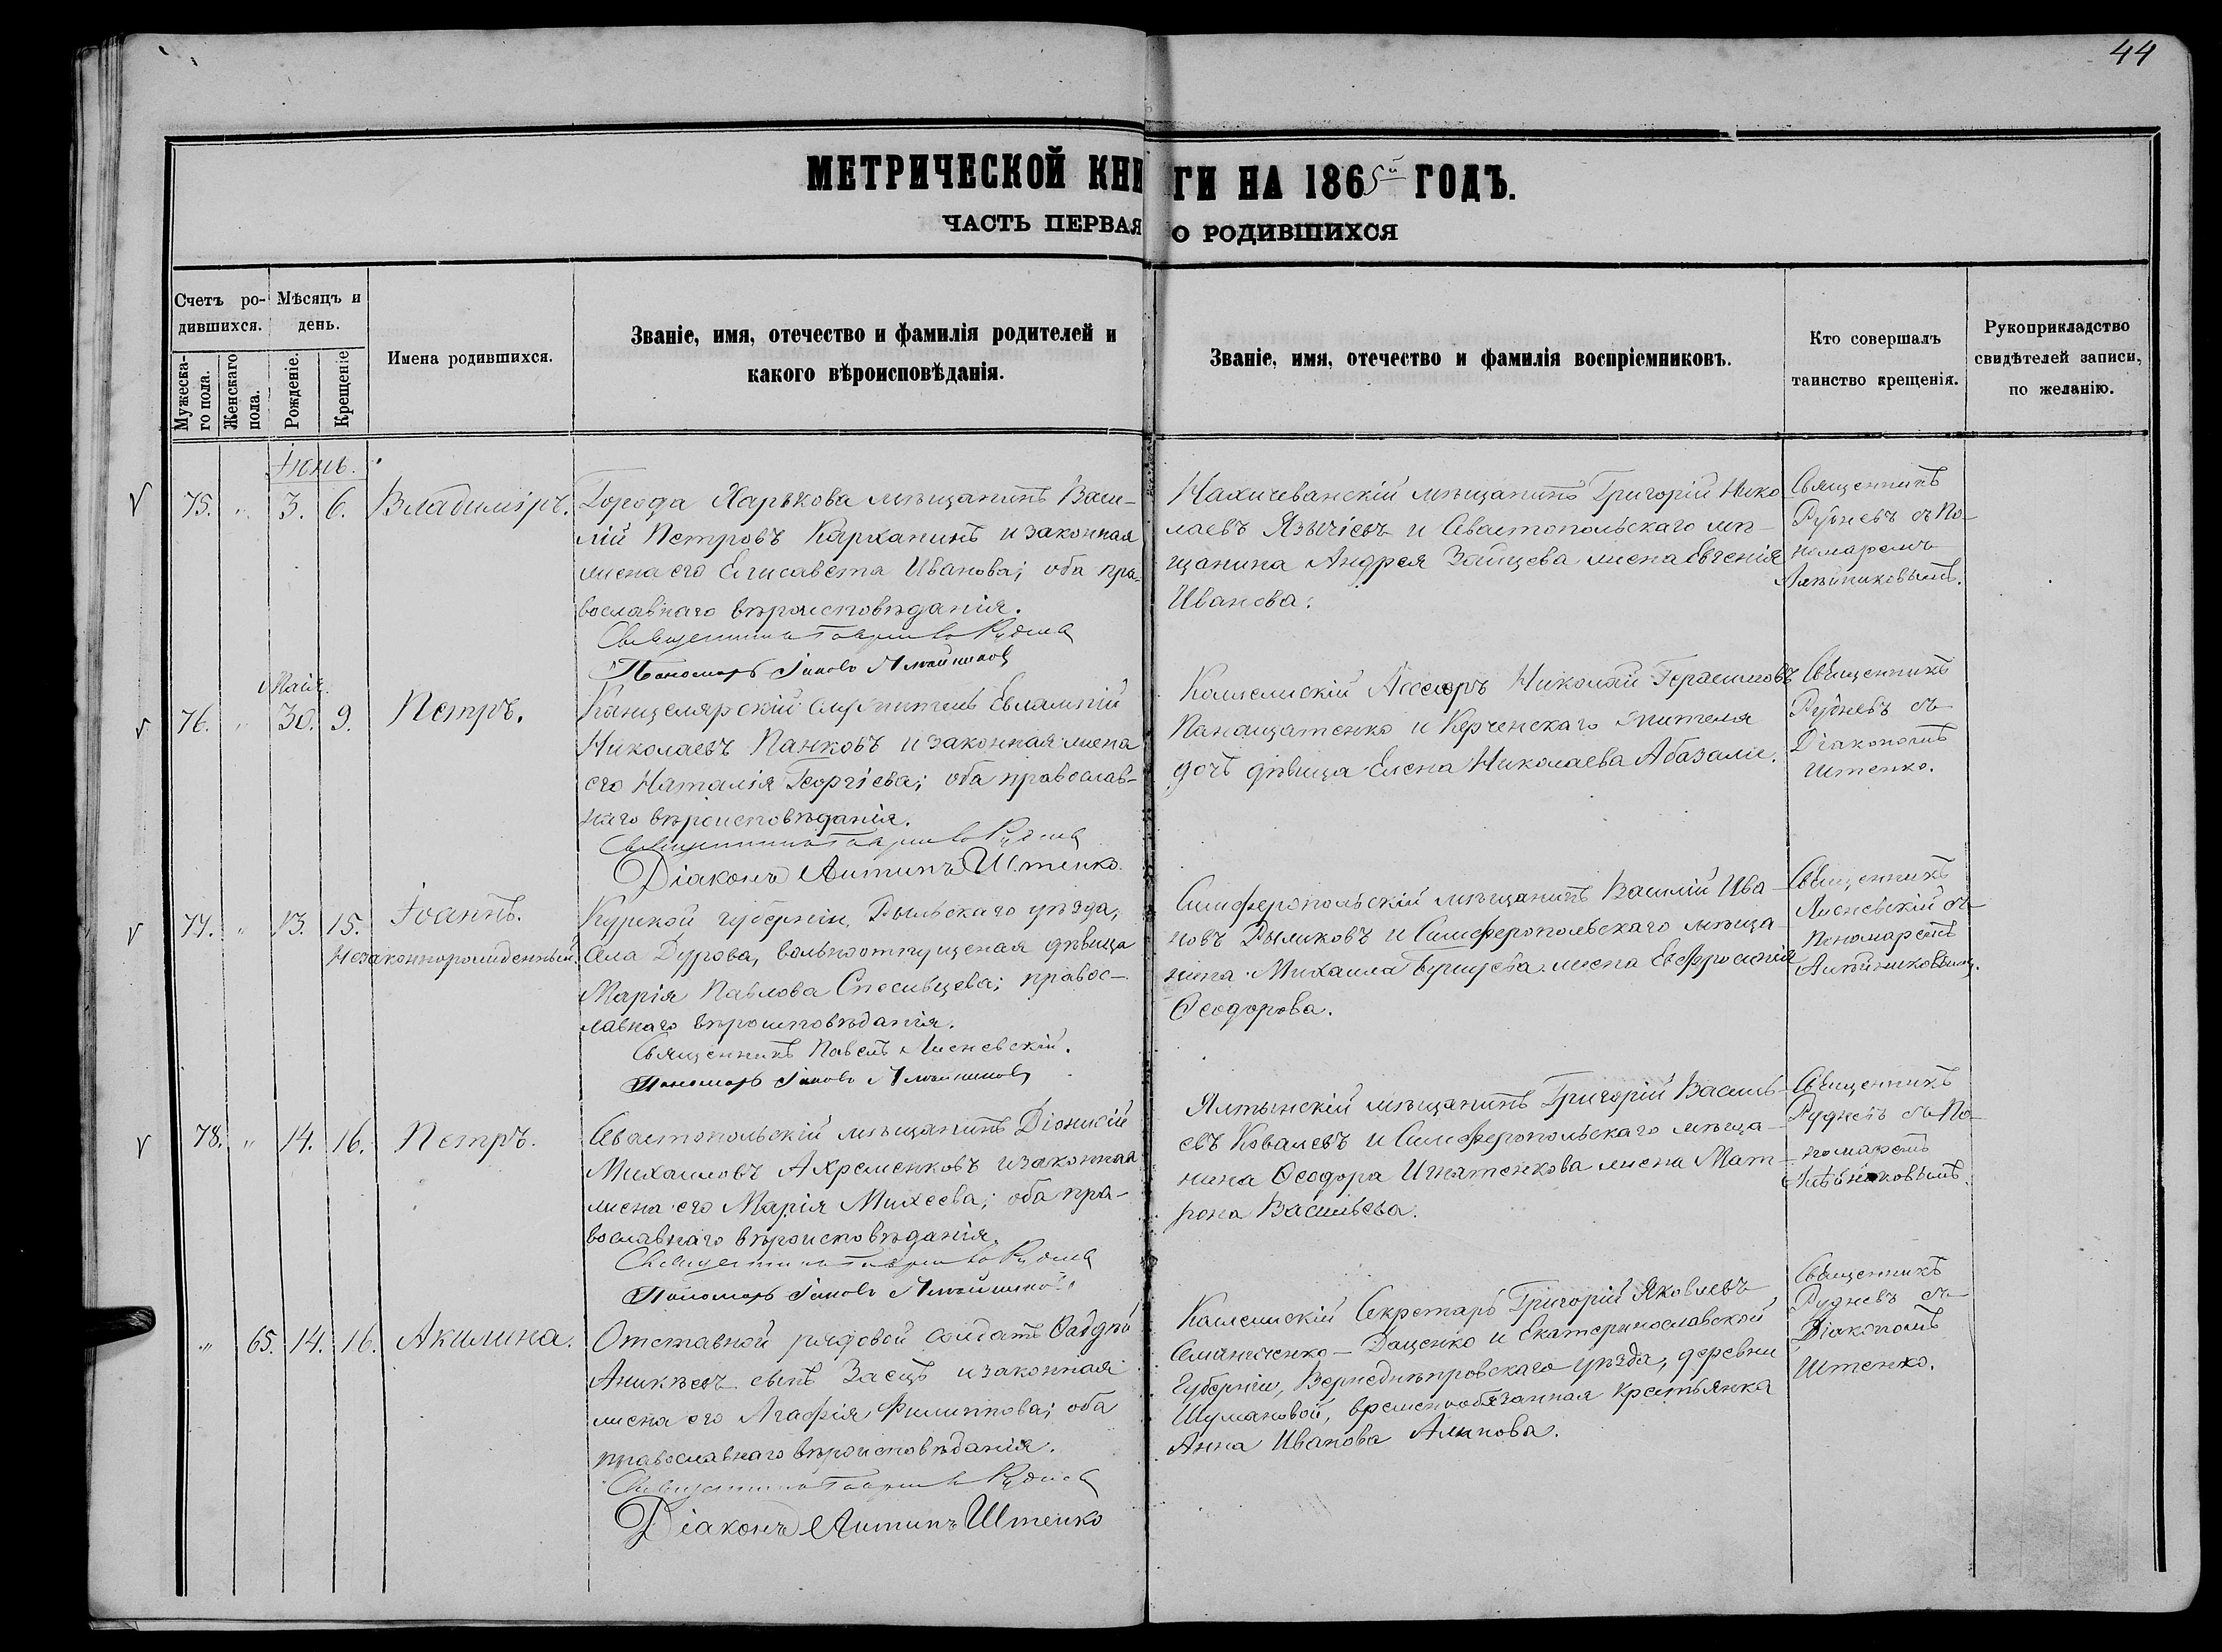 44
МЕТРИЧЕСКОЙ КНИГИ НА 1865й ГОДЪ.
ЧАСТЬ ПЕРВАЯ О РОДИВШИХСЯ
Счетъ ро-
дившихся.
Мужеска-
го пола.
Женскаго
пола.
Мѣсяцъ и
день.
Рожденіе.
Крещеніе
Имена родившихся.
Званіе, имя, отечество и фамилія родителей и
какого вѣроисповѣданія.
Званіе, имя, отечество и фамилія воспріемниковъ.
Кто совершалъ
таинство крещенія.
Рукоприкладство
свидѣтелей записи,
по желанію.
Іюнь.
75. " 3. 6. Владиміръ.
Города Харькова мѣщанинъ Васи-
лій Петровъ Карханинъ и законная
жена его Елисавета Иванова; оба пра-
вославнаго вѣроисповѣданія.
Священникъ Гавріилъ Рудневъ
Пономарь Іаковъ Алейниковъ
Нахичеванскій мѣщанинъ Григорій Нико
лаевъ Язычіевъ и Севастопольскаго мѣ-
щанина Андрея Зайцева жена Евгенія
Иванова.
Священникъ
Рудневъ съ По-
номаремъ
Алѣйниковымъ.
Маія.
76. " 30. 9. Петръ.
Канцелярскій служитель Евлампій
Николаевъ Панковъ и законная жена
его Наталія Георгіева; оба православ-
наго вѣроисповѣданія.
Священникъ Гавріилъ Рудневъ
Діаконъ Антипъ Штенко.
Коллежскій Ассесоръ Николай Герасимовъ
Панащатенко и Керченскаго жителя
дочь дѣвица Елена Николаева Абазали.
Священникъ
Рудневъ съ
Діакономъ
Штенко.
77. " 13. 15. Іоаннъ.
Незаконнорожденный.
Курской губерніи, Рыльскаго уѣзда,
села Дурова, вольноотпущеная дѣвица
Марія Павлова Спесивцева; правос-
лавнаго вѣроисповѣданія.
Священникъ Павелъ Лисневскій.
Пономарь Іаковъ Алейниковъ
Симферопольскій мѣщанинъ Василій Ива-
новъ Рыжковъ и Симферопольскаго мѣща-
нина Михаила жена Евфросинія
Ѳеодорова.
Священникъ
Лисневскій съ
Пономаремъ
Алѣйниковымъ.
78. " 14. 16. Петръ.
Севастопольскій мѣщанинъ Діонисій
Михаиловъ Ахременковъ и законная
жена его Марія Михеева; оба пра-
вославнаго вѣроисповѣданія.
Священникъ Гавріилъ Рудневъ
Пономарь Іаковъ Алейниковъ
Ялтынскій мѣщанинъ Григорій Василь-
евъ Ковалевъ и Симферопольскаго мѣща-
нина Ѳеодора Игнатенкова жена Мат-
рона Васильева.
Священникъ
Рудневъ съ По-
номаремъ
Алѣйниковымъ.
" 65. 14. 16. Акилина.
Отставной рядовой солдатъ Ѳаддѣй
Аникѣевъ сынъ Заецъ и законная
жена его Агафія Филиппова; оба
православнаго вѣроисповѣданія.
Священникъ Гавріилъ Рудневъ
Діаконъ Антипъ Штенко
Коллежскій Секретарь Григорій Яковлевъ
Семянченко-Даценко и Екатеринославской
Губерніи, Верхнеднѣпровскаго уѣзда, деревни
Шумановой, временнообязанная крестьянка
Анна Иванова Алипова.
Священникъ
Рудневъ съ
Діакономъ
Штенко.